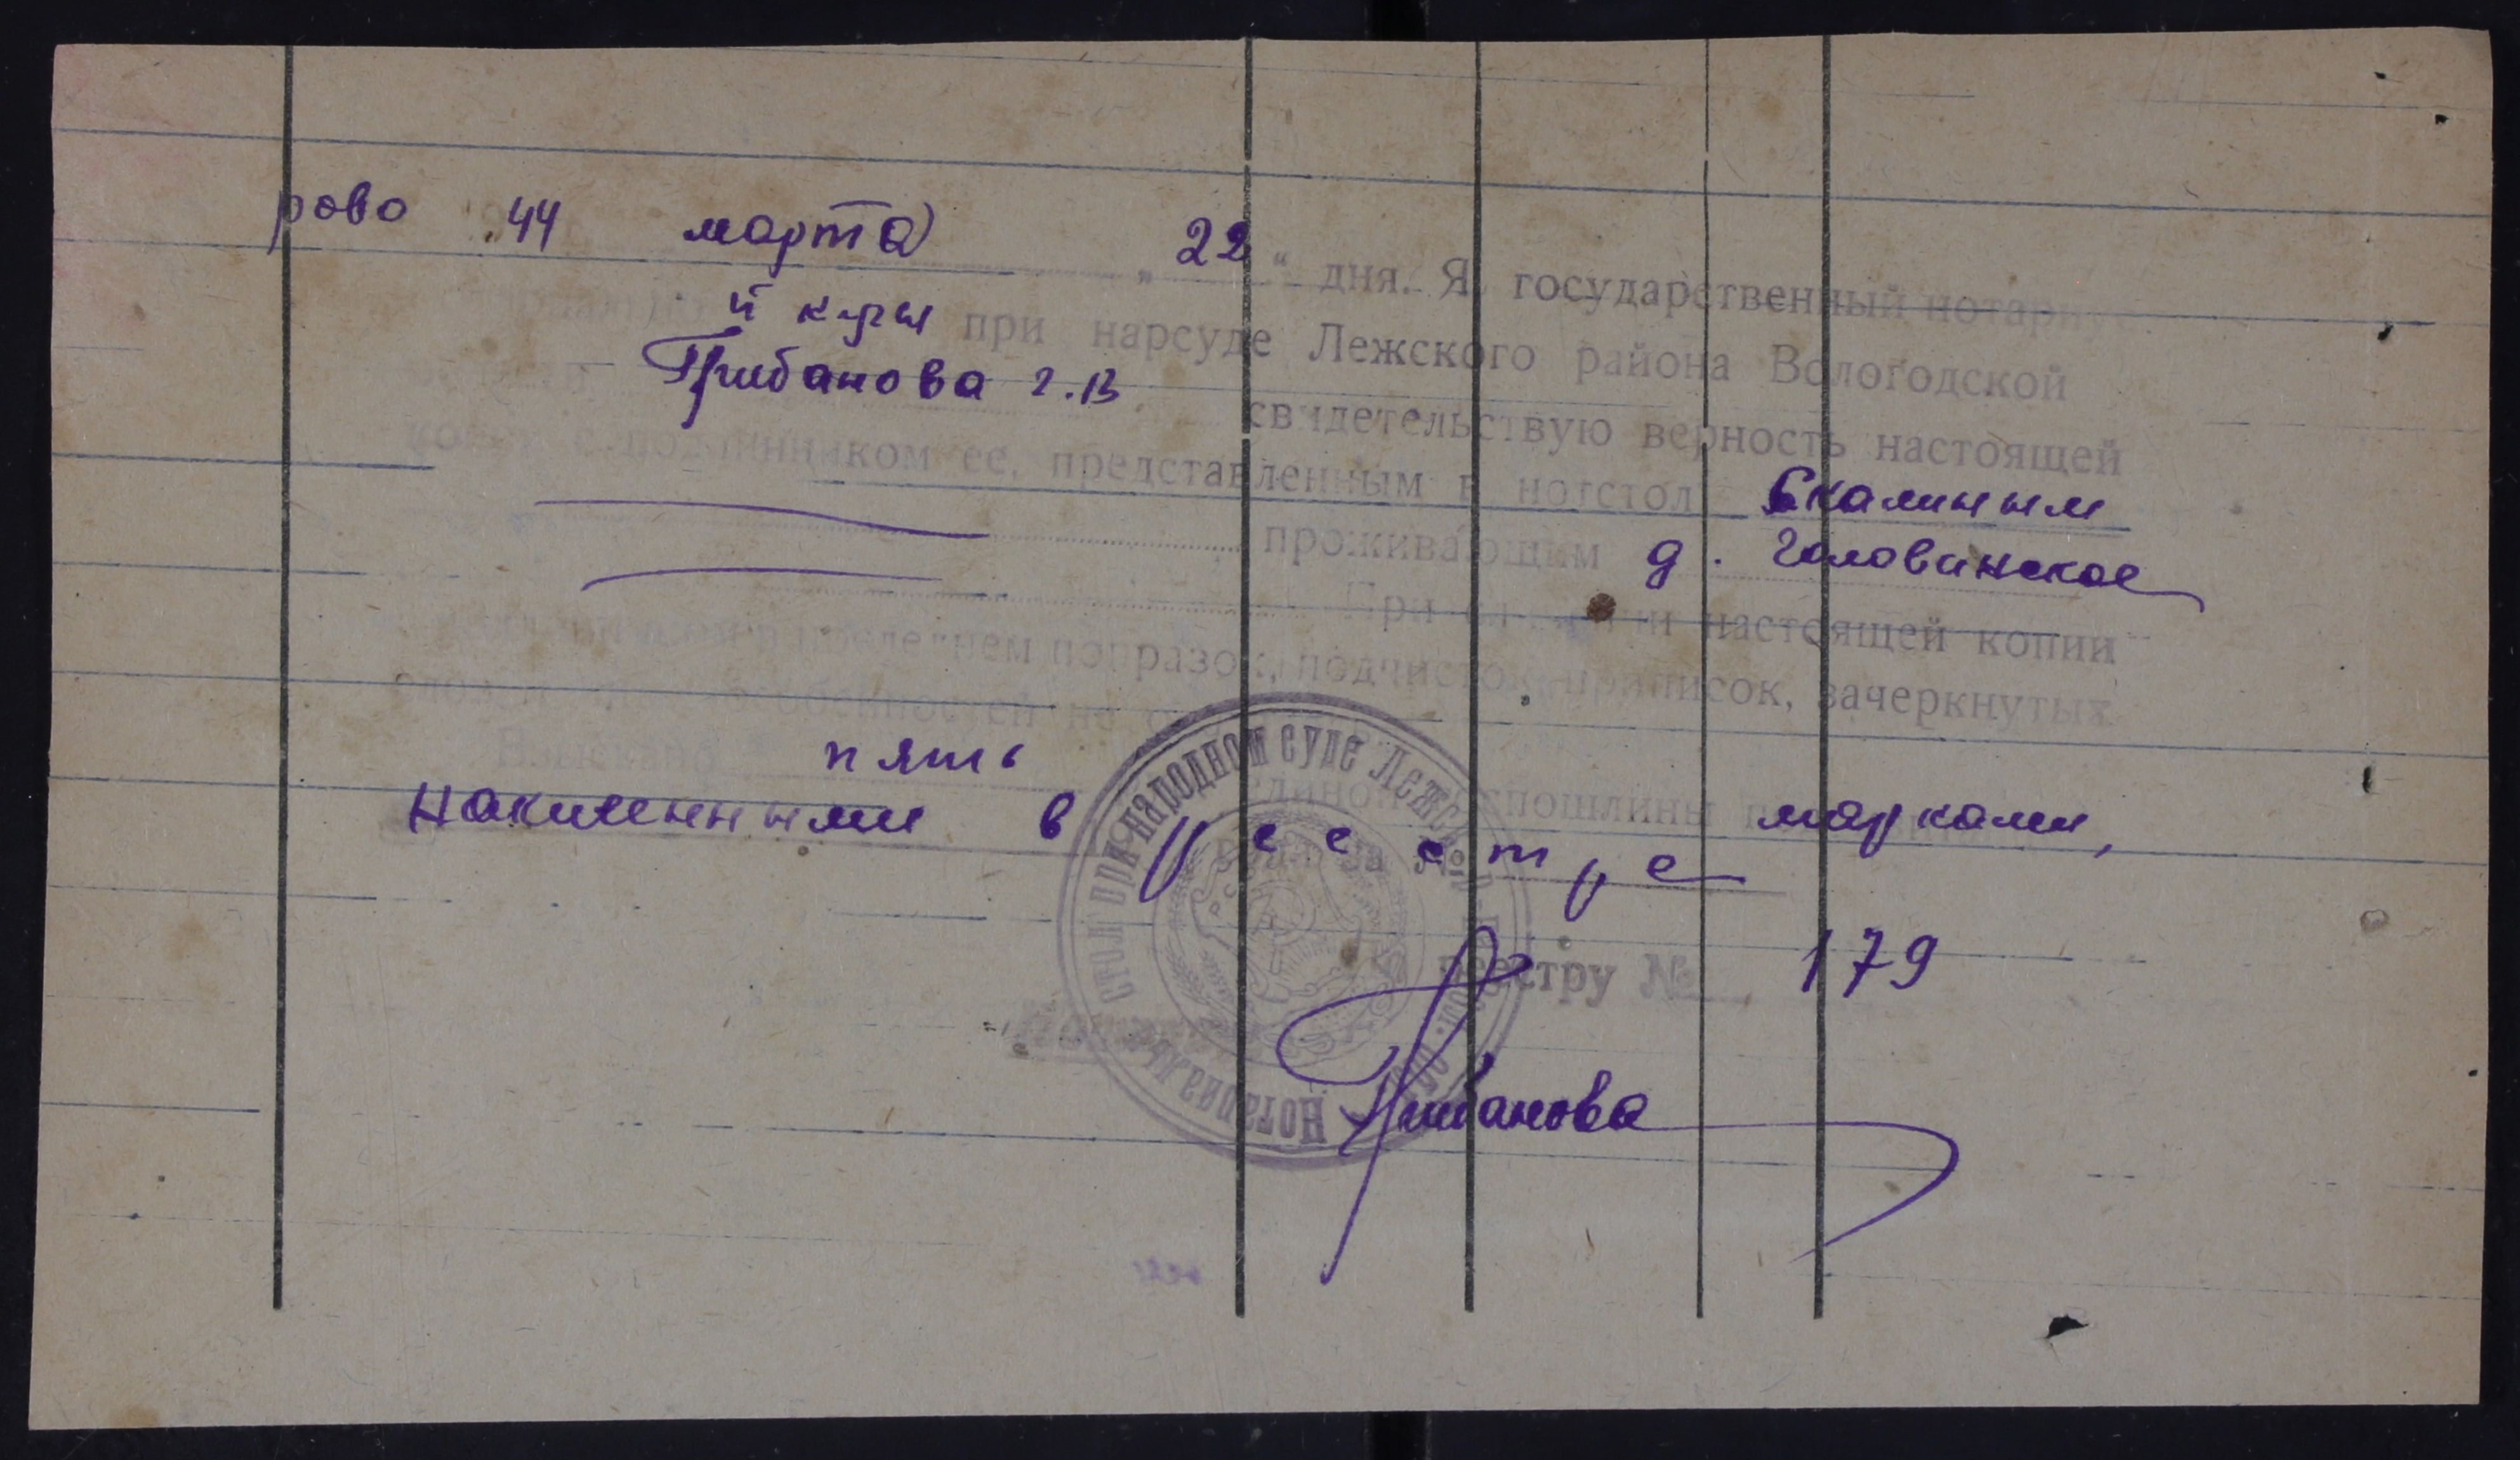 рово 44 марта „22“ дня. Я, государственный нотариус
при нарсуде Лежского района Вологодской
Грибанова Г.В свидетельствую верность настоящей
копии с подлинником ее, представленным в нотстол Скалиным
проживающим д. Головинское
При настоящей копии
последнем поправок, подчисток, приписок, зачеркнутых
особенностей не
Взыскано пять единой госпошлины марками,
наклеенными в реестре
реестру № 179
Грибанова
Нотариальный стол при народном суде Лежского р-на Волог. обл.